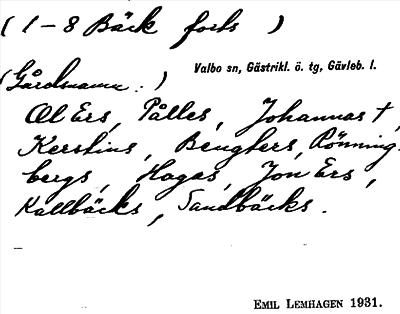 ( 1 - 8 Bäck forts )
Valbo sn, Gästrikl. ö. tg, Gävleb. l.
(Gårdsnamn.)
Ol Ers, Pålles, Johannas †,
Kerstins, Bengters, Rönning-
bergs, Hagas, Jon Ers,
Källbäcks, Sandbäcks.
EMIL LEMHAGEN 1931.